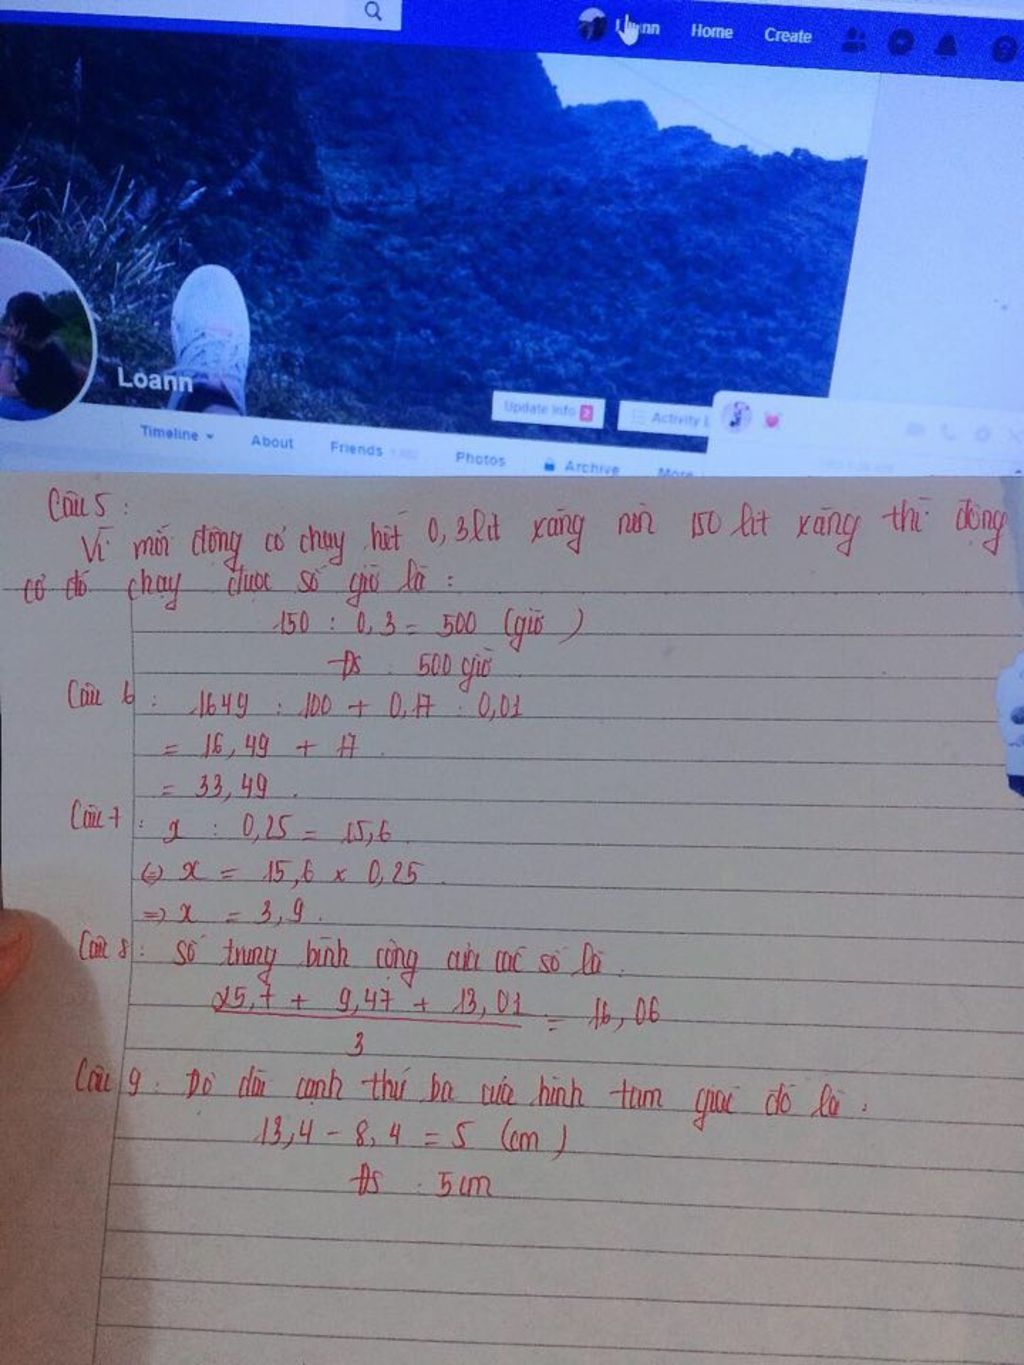 Home Create
Loann
Update Info 2
Activity
Timeline About Friends Photos Archive More
Câu 5 :
Vì mỗi động cơ chạy hết 0,3 lít xăng nên 150 lít xăng thì động
cơ đó chạy được số giờ là :
150 : 0,3 = 500 (giờ)
Đs : 500 giờ
Câu 6 : 1649 : 100 + 0,17 : 0,01
= 16,49 + 17
= 33,49.
Câu 7 : x : 0,25 = 15,6
(=) x = 15,6 x 0,25
=> x = 3,9.
Câu 8 : Số trung bình cộng của các số là
25,7 + 9,47 + 13,01 = 16,06
3
Câu 9 : Độ dài cạnh thứ ba của hình tam giác đó là :
13,4 - 8,4 = 5 (cm)
Đs : 5cm